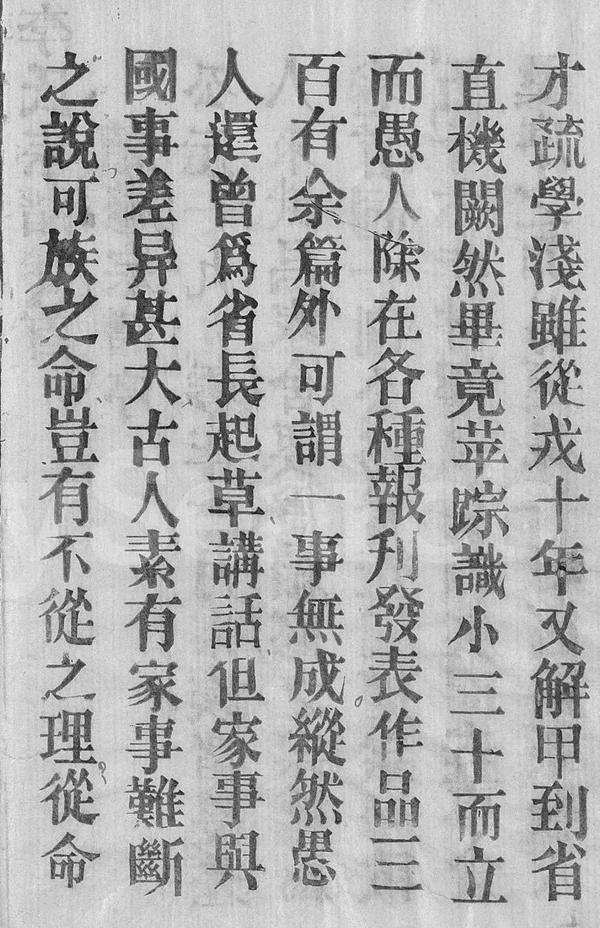 才疏學淺雖從戎十年又解甲到省
直機闕然畢竟苹踪識小三十而立
而愚人除在各種報刊發表作品三
百有余篇外可謂一事無成縱然愚
人還曾爲省長起草講話但家事與
國事差异甚大古人素有家事難斷
之說可族之命豈有不從之理從命